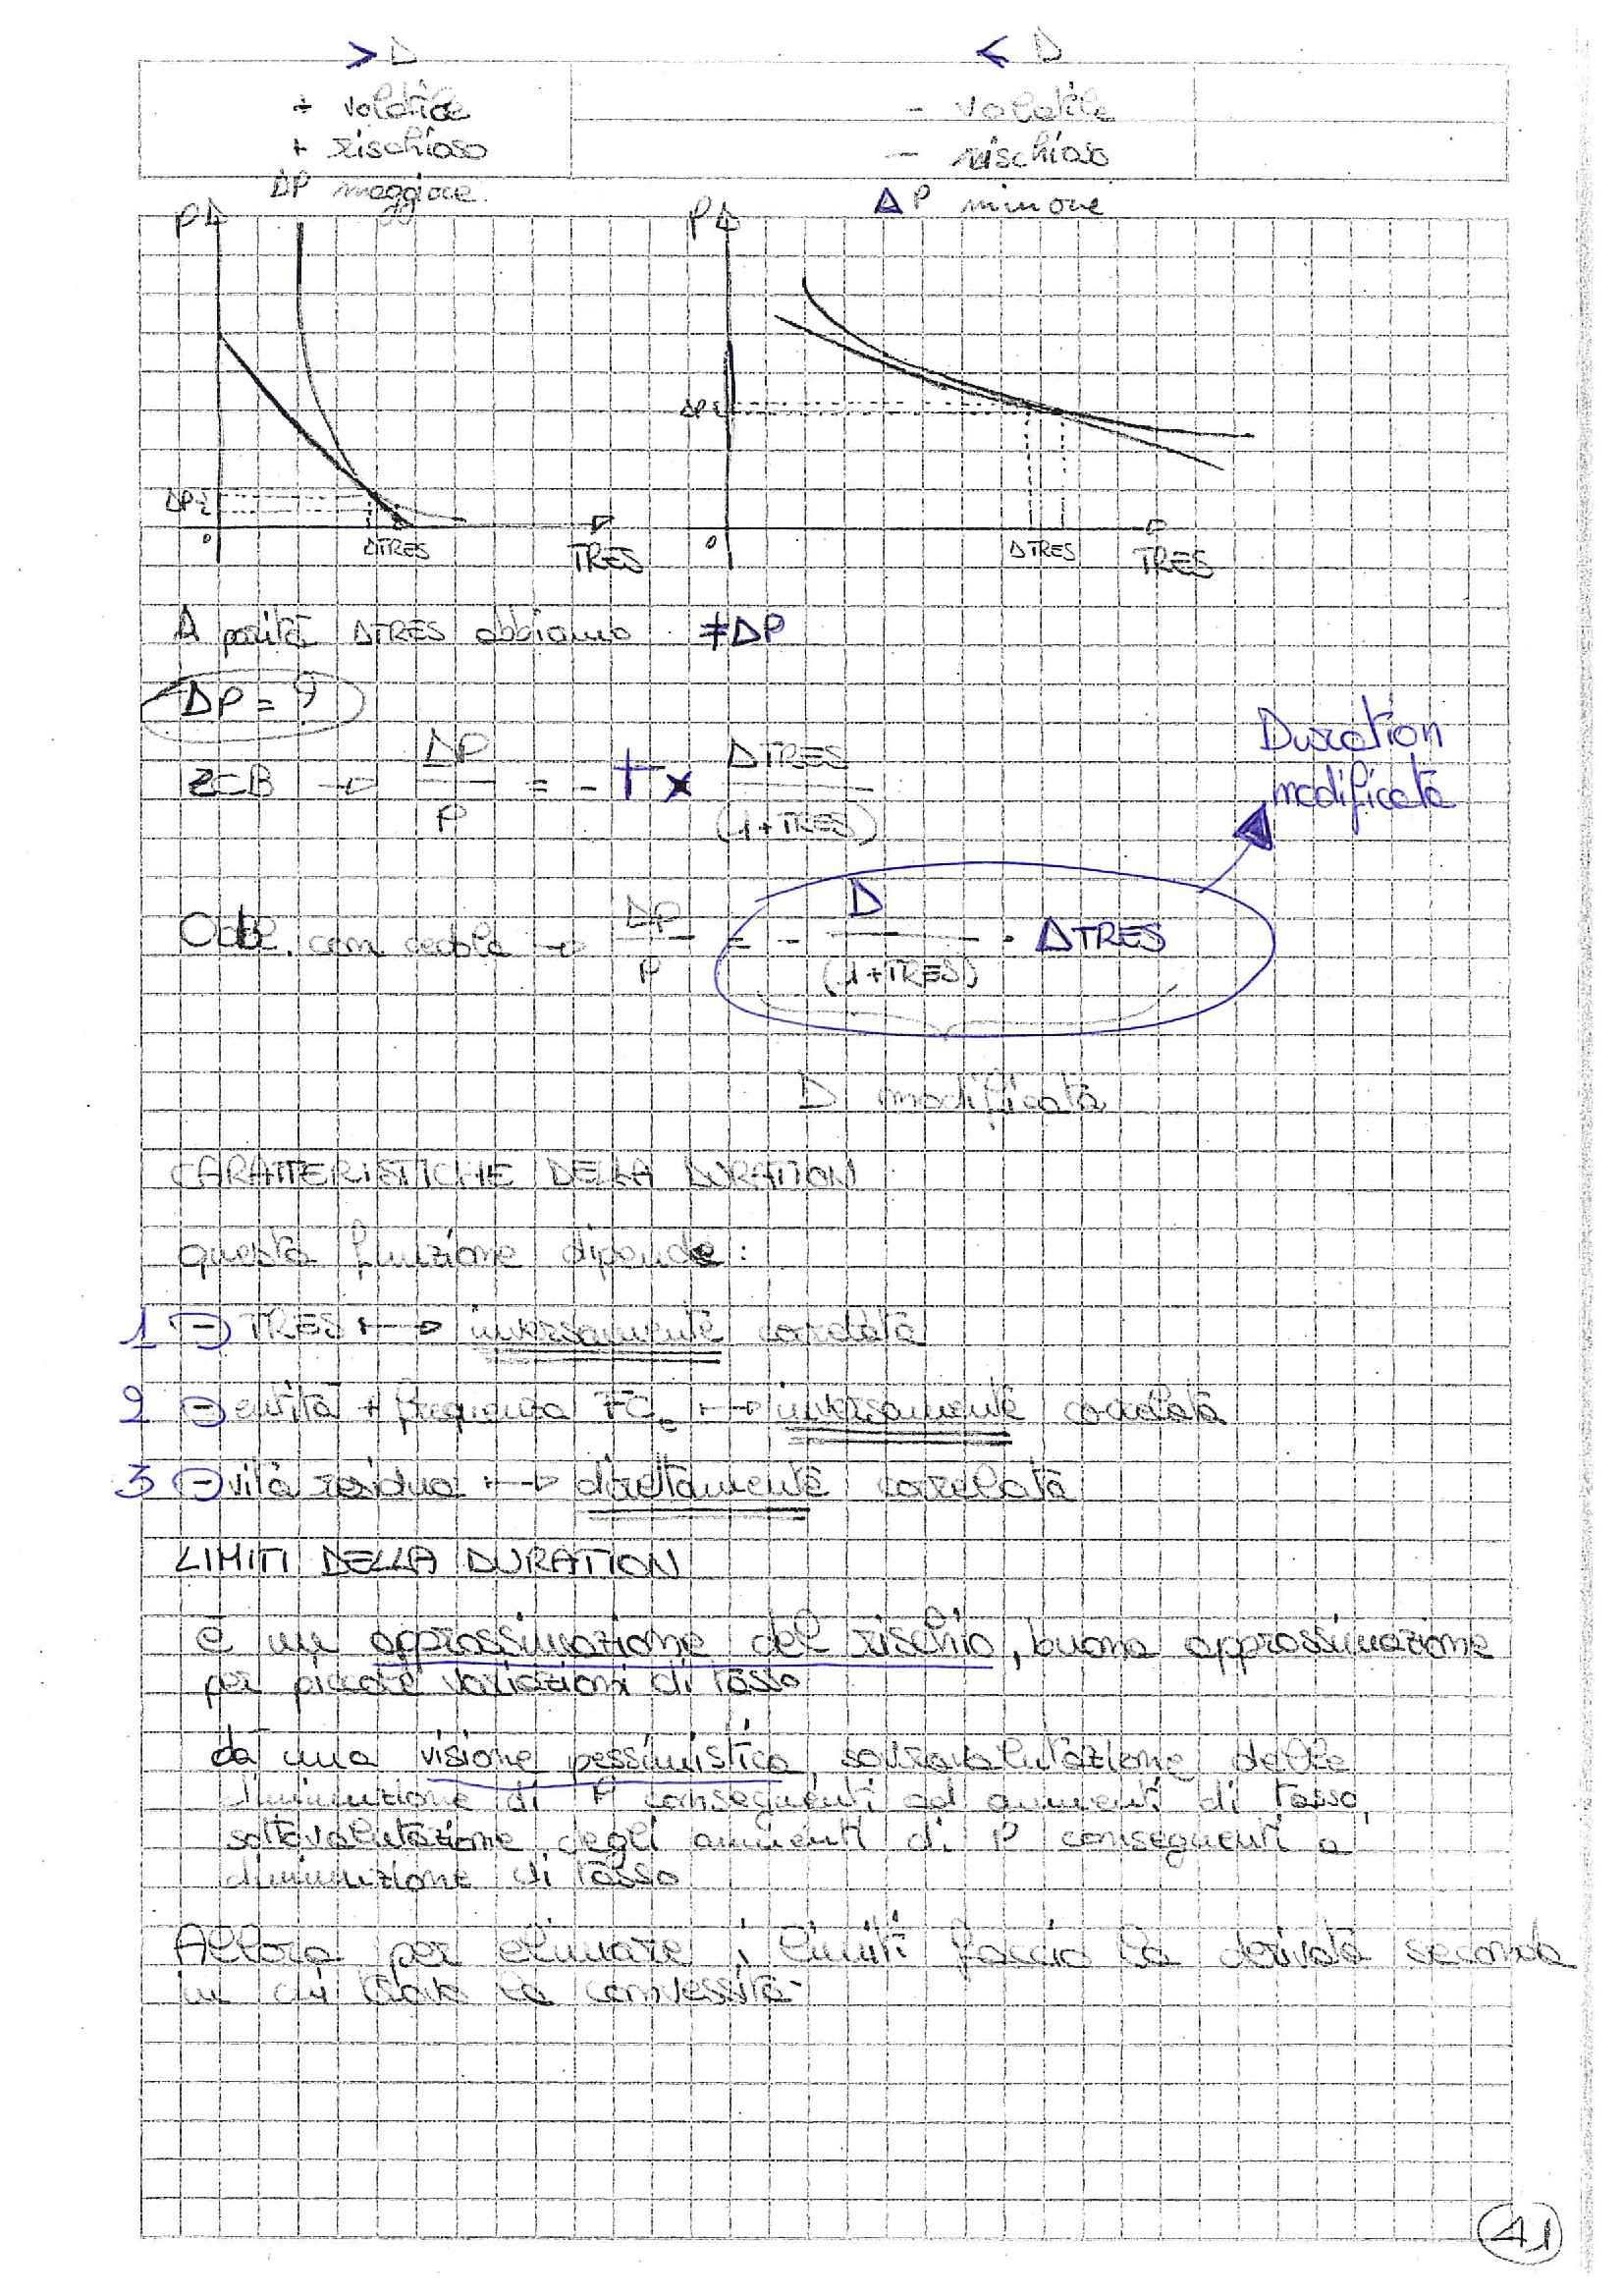 > D
< D
+ volatile
- volatile
+ rischioso
- rischioso
ΔP maggiore
ΔP minore
P
P
ΔP
ΔP
0
ΔTRES
TRES
0
ΔTRES
TRES
A parità ΔTRES abbiamo ≠ΔP
ΔP = ?
ZCB → ΔP/P = - t x ΔTRES/(1+TRES)
Duration
modificata
Obbl. con cedola → ΔP/P = - D/(1+TRES) · ΔTRES
D modificata
CARATTERISTICHE DELLA DURATION
questa funzione dipende:
1 - TRES → inversamente correlata
2 - entità + frequenza FCc → inversamente correlata
3 - vita residua → direttamente correlata
LIMITI DELLA DURATION
è un approssimazione del rischio, buona approssimazione
per piccole variazioni di tasso
da una visione pessimistica, sovravalutazione delle
diminuzione di P conseguenti ad aumenti di tasso,
sottovalutazione degli aumenti di P conseguenti a
diminuzione di tasso
Allora per eliminare i limiti faccio la derivata seconda
in cui trovo la convessità
41